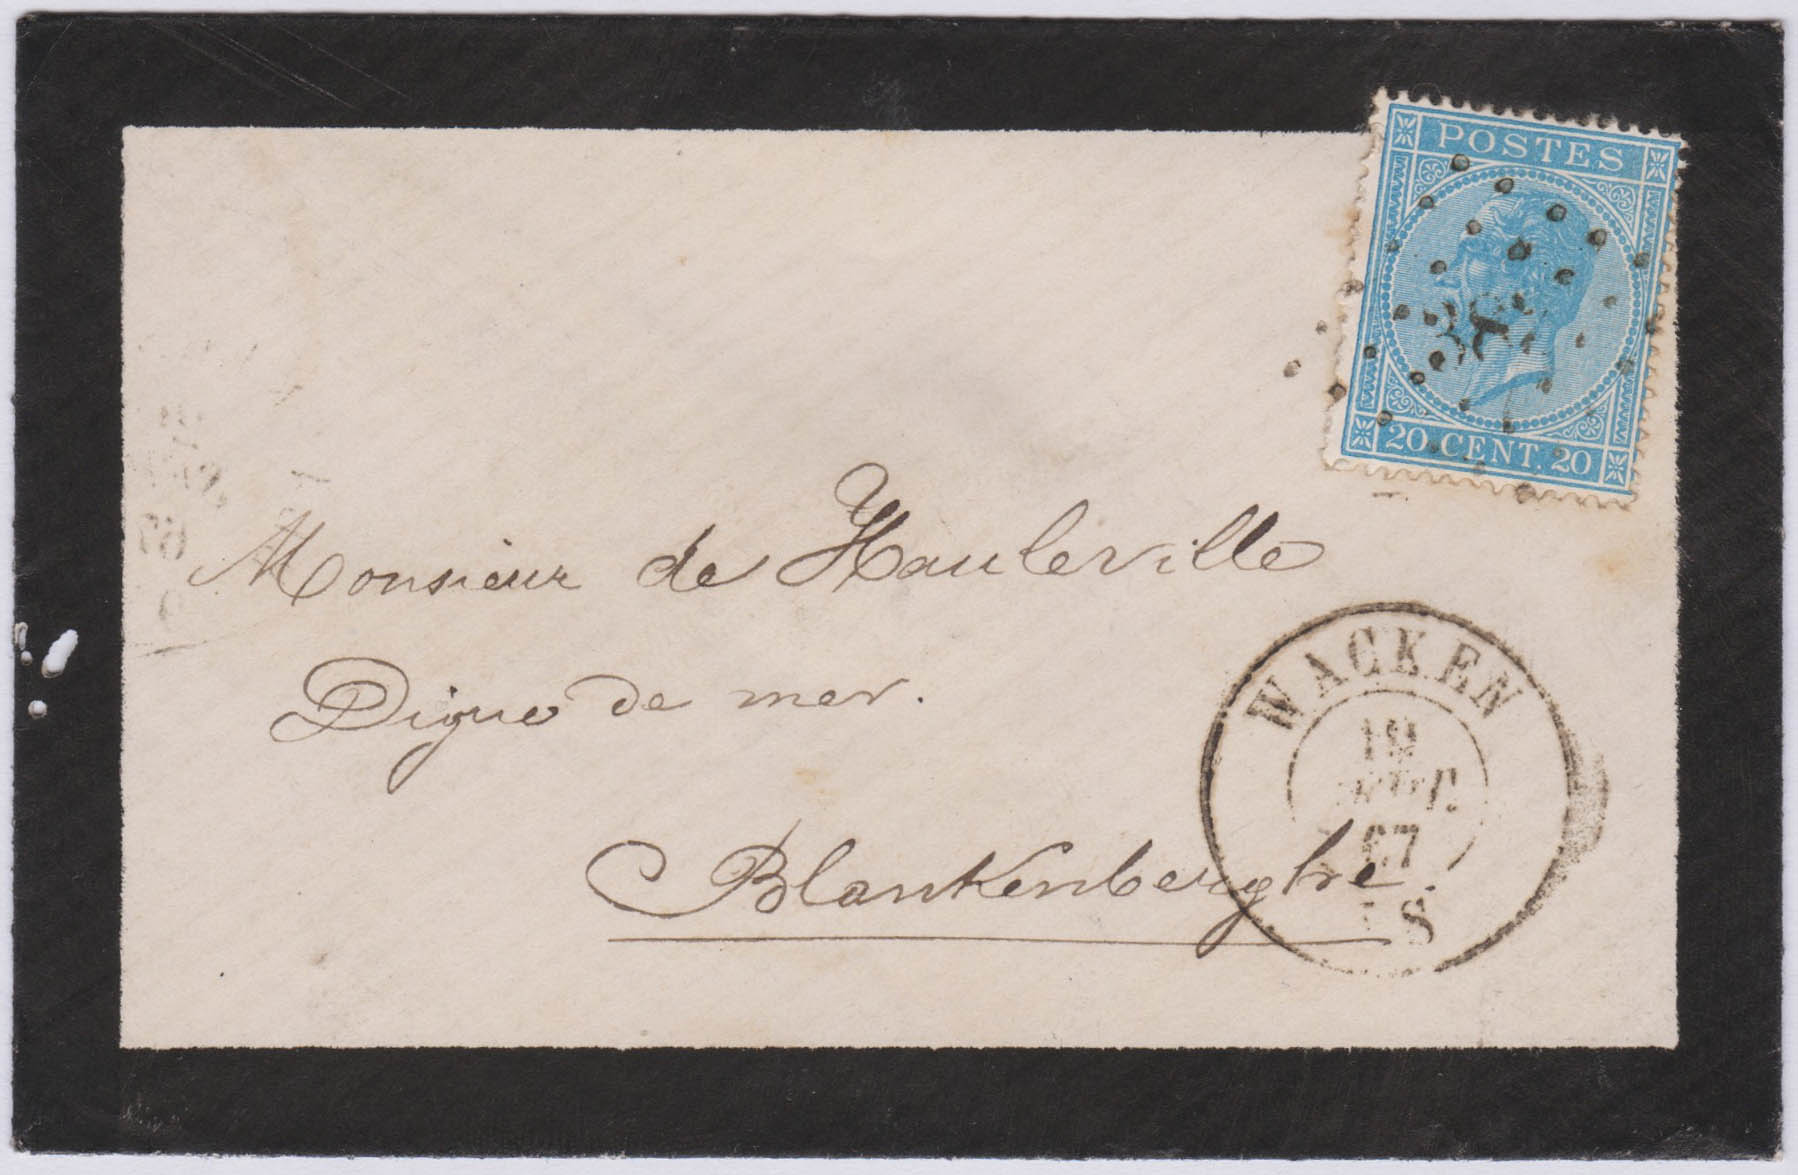 POSTES
20 CENT. 20
Monsieur de Hauleville
Digue de mer.
Blankenberghe.
WACKEN
19
SEPT.
67
S